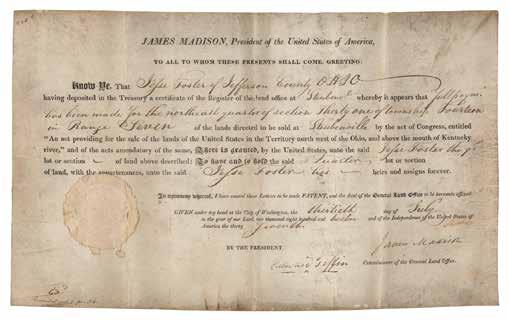 JAMES MADISON, President of the United States of America,
TO ALL TO WHOM THESE PRESENTS SHALL COME, GREETING:
Know Ye, That Jesse Foster of Jefferson County OHIO
having deposited in the Treasury a certificate of the Register of the land office at Steubenville whereby it appears that full payment
has been made for the northeast quarter of section thirty one of township fourteen
in Range Seven of the lands directed to be sold at Steubenville by the act of Congress, entitled
"An act providing for the sale of the lands of the United States in the Territory north west of the Ohio, and above the mouth of Kentucky
river," and of the acts amendatory of the same, There is granted, by the United States, unto the said Jesse Foster the
lot or section of land above described: To have and to hold the said quarter lot or section
of land, with the appurtenances, unto the said Jesse Foster his heirs and assigns forever.
In testimony whereof, I have caused these Letters to be made PATENT, and the seal of the General Land Office to be hereunto affixed.
GIVEN under my hand at the City of Washington, the thirtieth day of July
in the year of our Lord, one thousand eight hundred and twelve and of the Independence of the United States of
America the thirty seventh.
BY THE PRESIDENT, James Madison
Edward Tiffin Commissioner of the General Land Office.